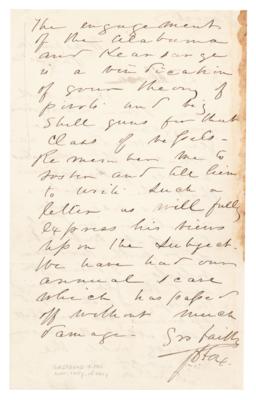 The engagement
of the Alabama
and Kearsarge
is a vindication
of your theory of
pivots and big
Shell guns for that
class of vessels.
Remember me to
and tell him
to write such a
letter as will fully
express his views
upon the subject.
We have had our
annual scare
which has passed
off without much
damage.
Yrs faithfly
GVFox